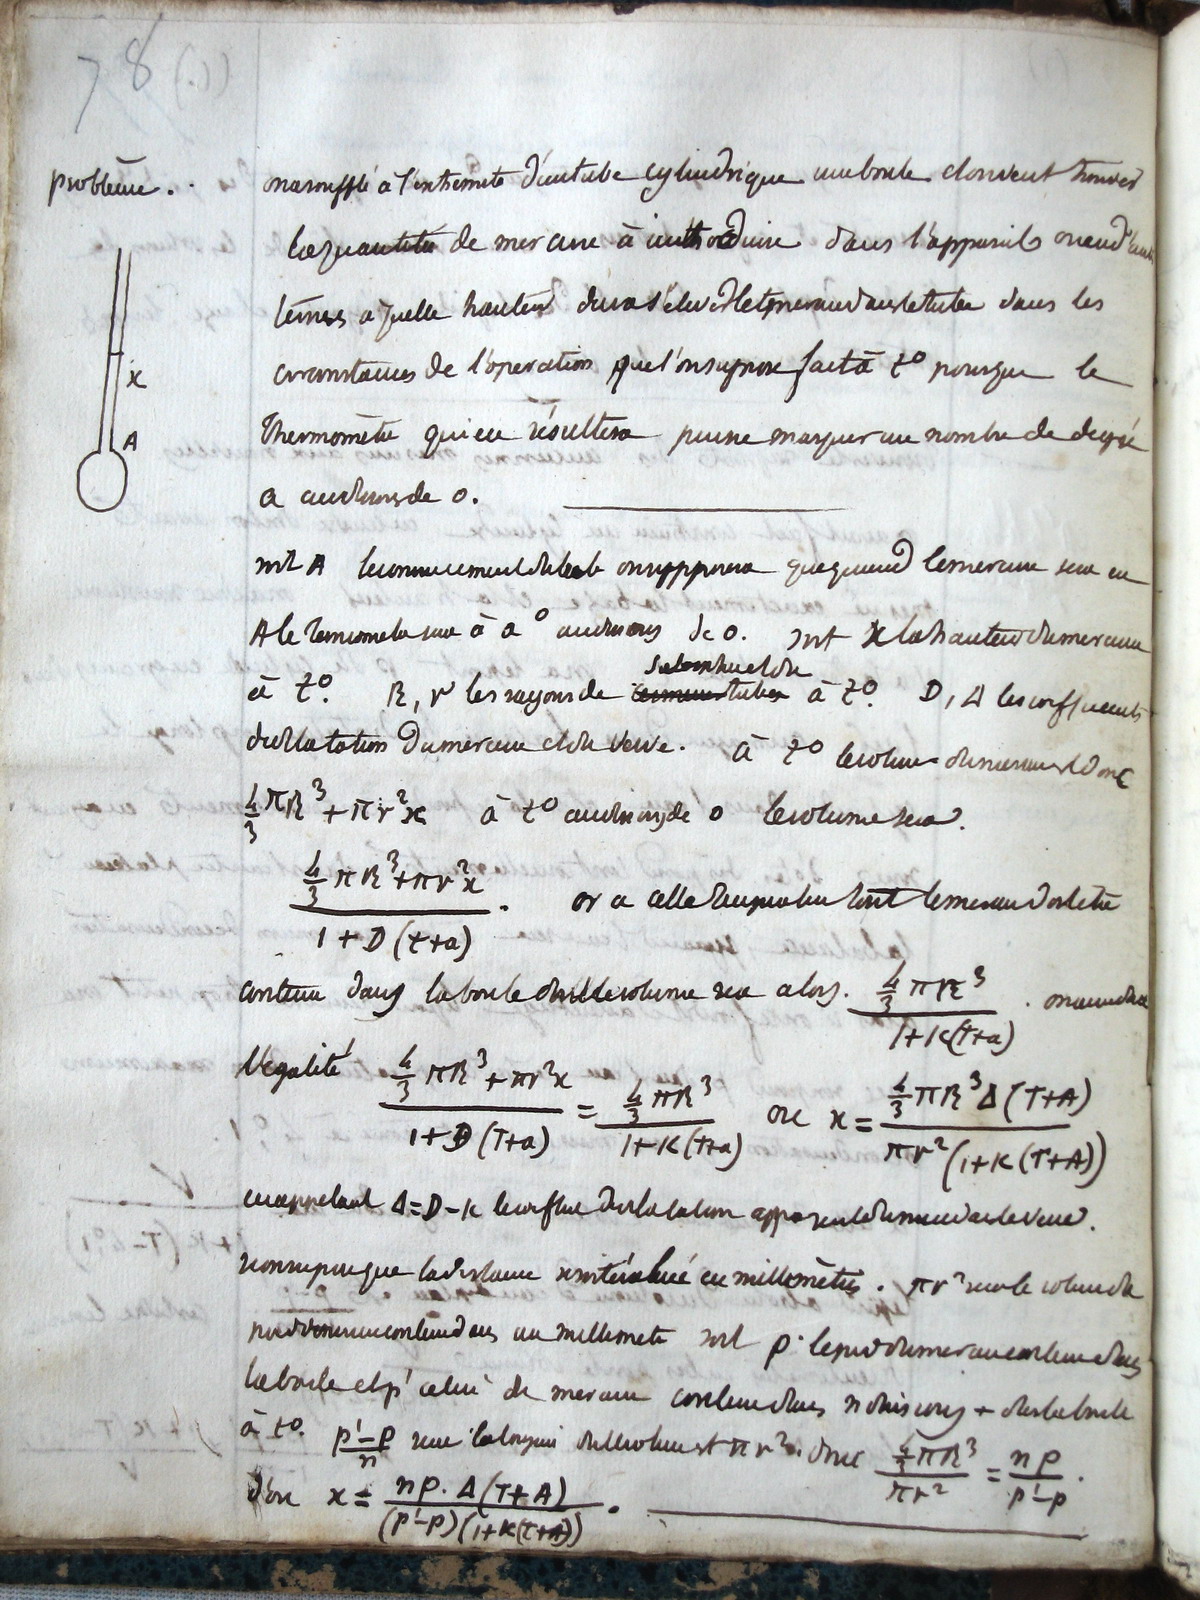 78 (1.)
problème .
on a soufflé à l'extremité d'un tube cylindrique une boule. on veut trouver
la quantité de mercure à introduire dans l'appareil ou en d'autres
termes a quelle hauteur devra s'élever le mercure dans le tube dans les
circonstances de l'operation que l'on suppose fait à t° pour que le
thermomètre qui en résultera puisse marquer un nombre de degré
a au dessous de 0.
x
A
soit A le commencement du tube on supposera que quand le mercure sera en
A le termometre sera à a° au dessous de 0. soit x la hauteur du mercure
à t°. R, r les rayons de à t°. D, Δ les coefficients
dilatation du mercure et du verre. à t° le volume du mercure est donc
4/3 πR³ + πr²x à t° au dessous de 0 le volume sera.
(4/3 πR³ + πr²x) / (1 + D(t+a)) . or a cette temperature tout le mercure doit être
contenu dans la boule dont le volume sera alors. (4/3 πR³) / (1+K(T+a)) . on aura donc
l'egalité (4/3 πR³ + πr²x) / (1+D(T+a)) = (4/3 πR³) / (1+K(T+a)) x = (4/3 πR³ Δ(T+A)) / (πr²(1+K(T+A)))
en appelant Δ=D-K le coefficient dilatation apparente du mercure dans le verre.
la distance x soit évaluée en millimètres. πr² sera le volume de
contenu dans un millimetre soit p le poids du mercure contenu dans
la boule et p' celui de mercure contenu dans n divisions + dans la boule
à t°. (p'-p)/n sera dont le volume est πr². donc (4/3 πR³)/(πr²) = np/(p'-p) .
d'où x = (np. Δ(T+A)) / ((p'-p)(1+K(T+A))) .